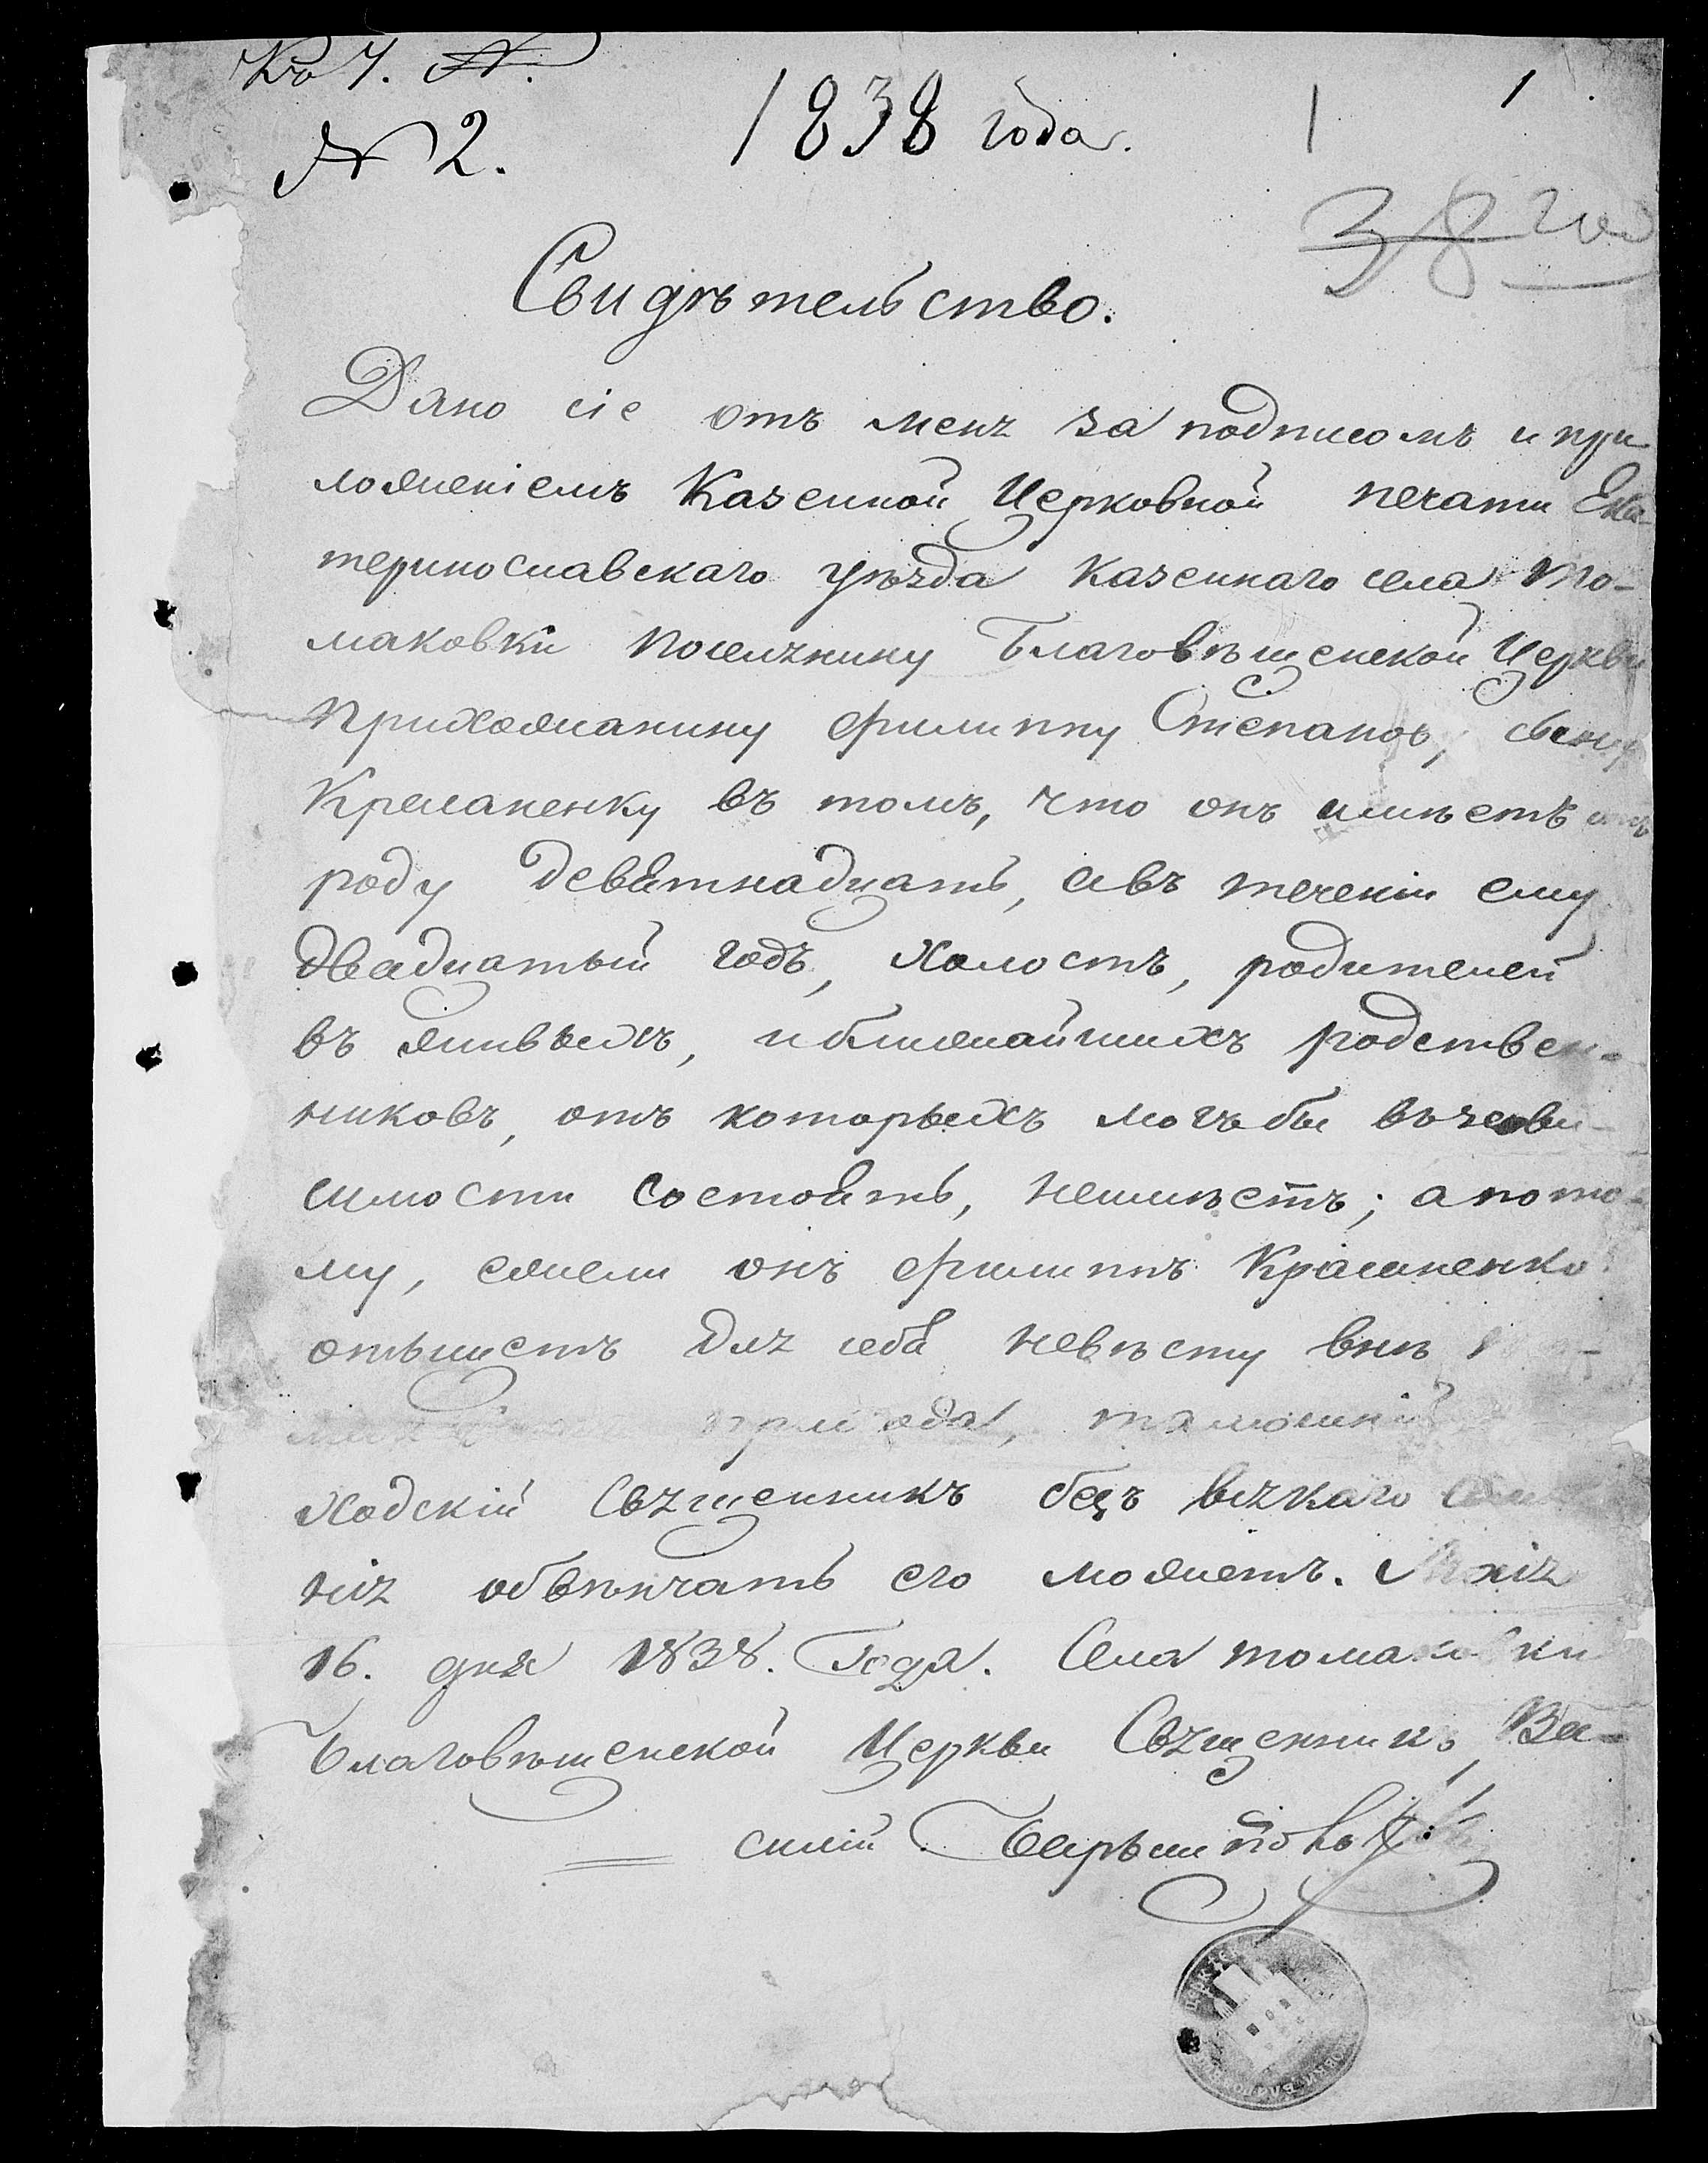 Къ 7. №.
№ 2.
1838 года.
1
1
38 год
Свидѣтельство.
Дано сіе отъ меня за подписомъ и при-
ложеніемъ Казенной Церковной печати Ека-
теринославскаго уѣзда Казеннаго села То-
маковки поселянину Благовѣщенской Церкви
Прихожанину Филиппу Степанов, сыну
въ томъ, что онъ имѣетъ отъ
роду девятнадцать, авъ теченіи ему
двадцатый годъ, холостъ, родителей
въ живыхъ, и ближайшихъ родствен-
никовъ, отъ которыхъ могъ бы въ зави-
симости состоять, неимѣетъ; а пото-
му, ежели онъ Филиппъ
отыщетъ для себя невѣсту внѣ
прихода, тамошній
ходскій Священникъ безъ всякаго
нія обвѣнчать его можетъ.
16. дня 1838. Года. Села Томаковки
Благовѣщенской Церкви Священникъ Ва-
силій